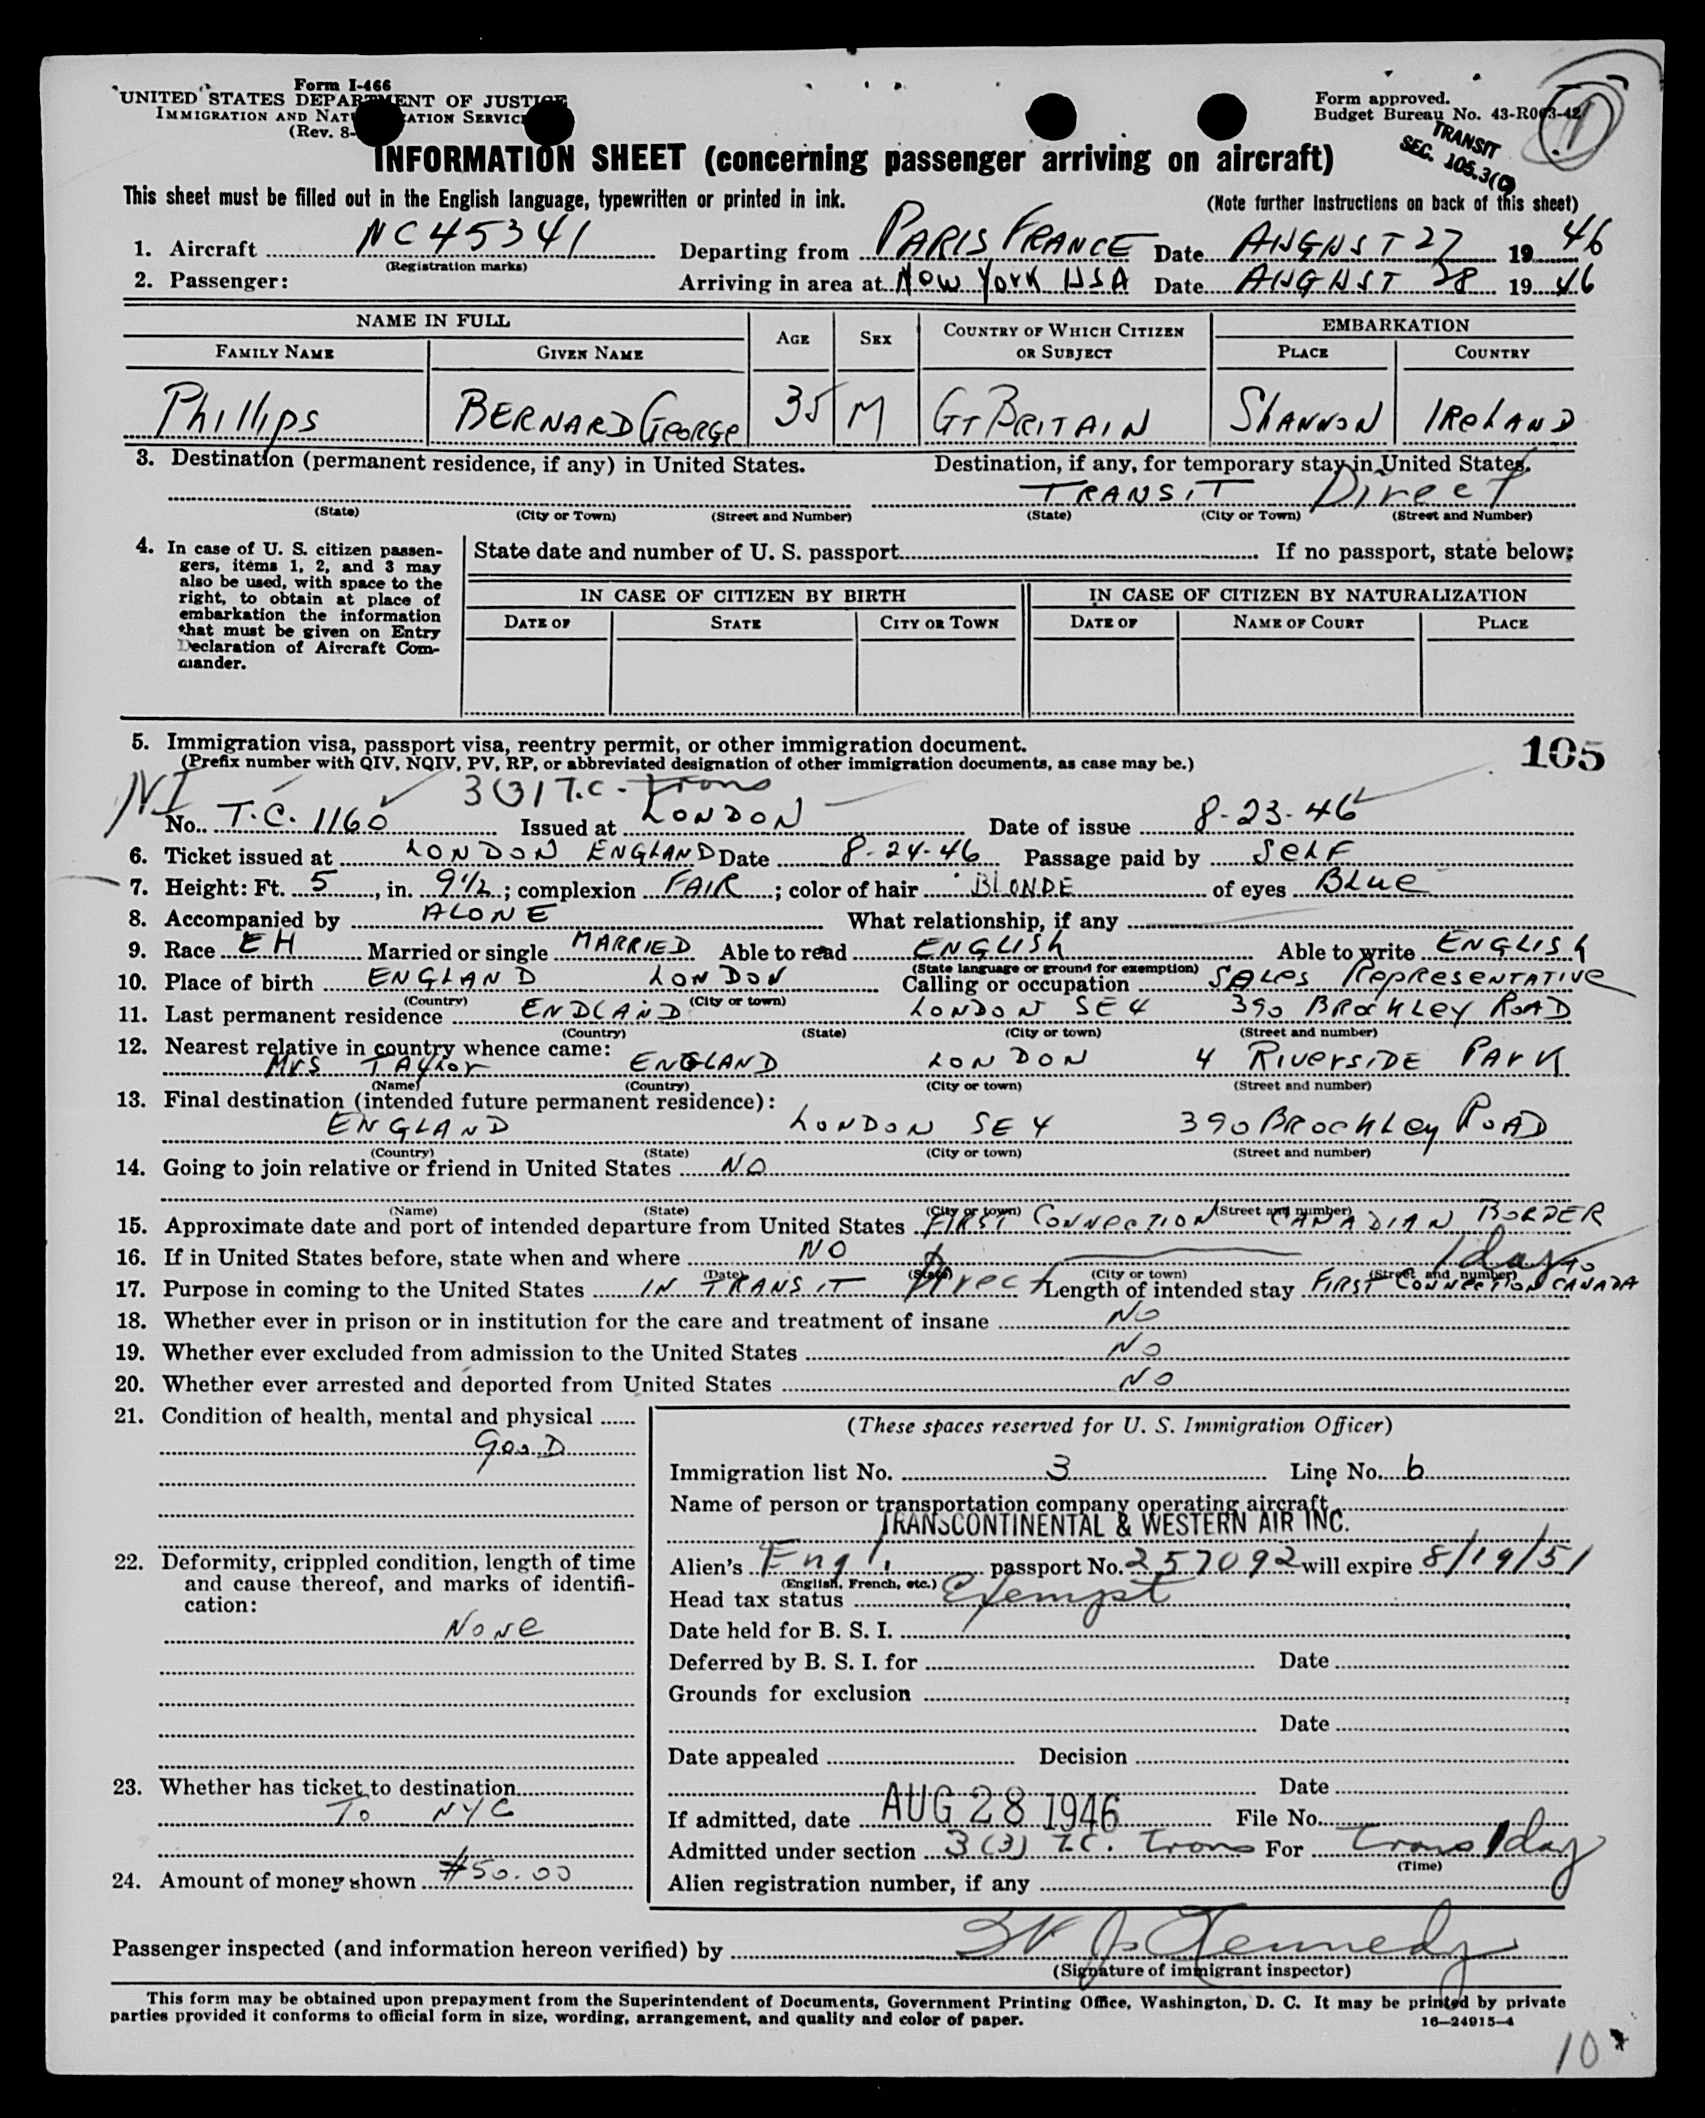 Form I-466
UNITED STATES DEPARTMENT OF JUSTICE
IMMIGRATION AND NAT ATION SERVIC
(Rev. 8-
Form approved.
Budget Bureau No. 43-R063-42
TRANSIT
SEC. 105.3(C)
INFORMATION SHEET (concerning passenger arriving on aircraft)
This sheet must be filled out in the English language, typewritten or printed in ink. (Note further instructions on back of this sheet)
1. Aircraft NC45341 Departing from PARIS FRANCE Date AUGUST 27 1946
(Registration marks)
2. Passenger: Arriving in area at New York USA Date AUGUST 28 1946
NAME IN FULL AGE SEX COUNTRY OF WHICH CITIZEN OR SUBJECT EMBARKATION
FAMILY NAME GIVEN NAME PLACE COUNTRY
Phillips BERNARD GEORGE 35 M GT BRITAIN SHANNON IRELAND
3. Destination (permanent residence, if any) in United States. Destination, if any, for temporary stay in United States.
TRANSIT Direct
(State) (City or Town) (Street and Number) (State) (City or Town) (Street and Number)
4. In case of U. S. citizen passen-
gers, items 1, 2, and 3 may
also be used, with space to the
right, to obtain at place of
embarkation the information
that must be given on Entry
Declaration of Aircraft Com-
mander.
State date and number of U. S. passport If no passport, state below:
IN CASE OF CITIZEN BY BIRTH IN CASE OF CITIZEN BY NATURALIZATION
DATE OF STATE CITY OR TOWN DATE OF NAME OF COURT PLACE
5. Immigration visa, passport visa, reentry permit, or other immigration document.
(Prefix number with QIV, NQIV, PV, RP, or abbreviated designation of other immigration documents, as case may be.)
105
NI 3(3) T.C. - trans
No. T.C. 1160 Issued at LONDON Date of issue 8-23-46
6. Ticket issued at LONDON ENGLAND Date 8-24-46 Passage paid by SELF
7. Height: Ft. 5, in. 9½; complexion FAIR; color of hair BLONDE of eyes BLUE
8. Accompanied by ALONE What relationship, if any
9. Race EH Married or single MARRIED Able to read ENGLISH Able to write ENGLISH
(State language or ground for exemption)
10. Place of birth ENGLAND LONDON Calling or occupation SALES REPRESENTATIVE
(Country) (City or town)
11. Last permanent residence ENDLAND LONDON SE4 390 BROCKLEY ROAD
(Country) (State) (City or town) (Street and number)
12. Nearest relative in country whence came:
Mrs TAYLOR ENGLAND LONDON 4 RIVERSIDE PARK
(Name) (Country) (City or town) (Street and number)
13. Final destination (intended future permanent residence):
ENGLAND LONDON SE4 390 BROCKLEY ROAD
(Country) (State) (City or town) (Street and number)
14. Going to join relative or friend in United States NO
(Name) (State) (City or town) (Street and number)
15. Approximate date and port of intended departure from United States FIRST CONNECTION CANADIAN BORDER
16. If in United States before, state when and where NO
(Date) (State) (City or town) (Street and number)
1 day
17. Purpose in coming to the United States IN TRANSIT Direct Length of intended stay FIRST CONNECTION TO CANADA
18. Whether ever in prison or in institution for the care and treatment of insane NO
19. Whether ever excluded from admission to the United States NO
20. Whether ever arrested and deported from United States NO
21. Condition of health, mental and physical
GOOD
22. Deformity, crippled condition, length of time
and cause thereof, and marks of identifi-
cation:
NONE
23. Whether has ticket to destination
To NYC
24. Amount of money shown $50.00
(These spaces reserved for U. S. Immigration Officer)
Immigration list No. 3 Line No. 6
Name of person or transportation company operating aircraft
TRANSCONTINENTAL & WESTERN AIR INC.
Alien's Engl. passport No. 257092 will expire 8/19/51
(English, French, etc.)
Head tax status Exempt
Date held for B. S. I.
Deferred by B. S. I. for Date
Grounds for exclusion
Date
Date appealed Decision
Date
If admitted, date AUG 28 1946 File No.
Admitted under section 3(3) T.C. trans For trans 1 day
(Time)
Alien registration number, if any
Passenger inspected (and information hereon verified) by J. Kennedy
(Signature of immigrant inspector)
This form may be obtained upon prepayment from the Superintendent of Documents, Government Printing Office, Washington, D. C. It may be printed by private
parties provided it conforms to official form in size, wording, arrangement, and quality and color of paper.
16—24915-4
10